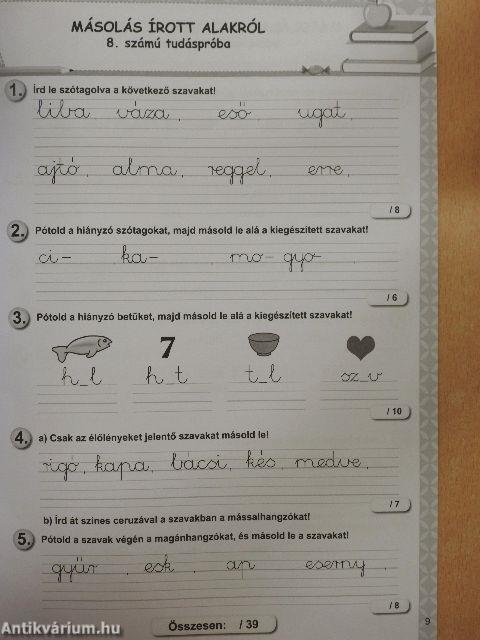 MÁSOLÁS ÍROTT ALAKRÓL
8. számú tudáspróba
1. Írd le szótagolva a következő szavakat!
liba váza, eső ugat,
ajtó, alma, reggel, erre,
/ 8
2. Pótold a hiányzó szótagokat, majd másold le alá a kiegészített szavakat!
ci- ka- mo- gyo-
/ 6
3. Pótold a hiányzó betűket, majd másold le alá a kiegészített szavakat!
7
h_l h_t t_l sz_v
/ 10
4. a) Csak az élőlényeket jelentő szavakat másold le!
rigó, kapa, bácsi, kés, medve,
/ 7
b) Írd át színes ceruzával a szavakban a mássalhangzókat!
5. Pótold a szavak végén a magánhangzókat, és másold le a szavakat!
gyűr , esk , ap eserny ,
/ 8
Összesen: / 39
9
Antikvárium.hu